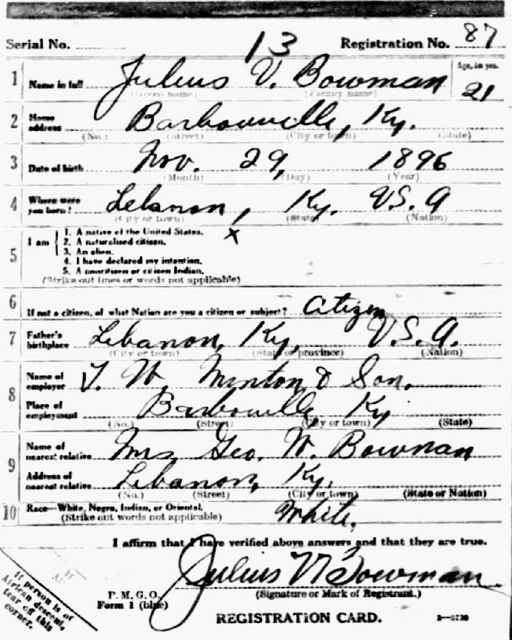 Serial No. 13 Registration No. 87
1 Name in full Julius V. Bowman Age, in yrs. 21
(Given name) (Family name)
2 Home address Barbourville, Ky.
(No.) (Street) (City or town) (State)
3 Date of birth Nov. 29, 1896
(Month) (Day) (Year)
4 Where were you born? Lebanon, Ky. U.S.A
(City or town) (State) (Nation)
5 I am
1. A native of the United States. X
2. A naturalized citizen.
3. An alien.
4. I have declared my intention.
5. A noncitizen or citizen Indian.
(Strike out lines or words not applicable)
6 If not a citizen, of what Nation are you a citizen or subject? Citizen
7 Father's birthplace Lebanon, Ky, U.S.A.
(City or town) (State or province) (Nation)
8 Name of employer T. W. Minton & Son.
Place of employment Barbourville Ky
(No.) (Street) (City or town) (State)
9 Name of nearest relative Mrs Geo. W. Bowman
Address of nearest relative Lebanon, Ky.
(No.) (Street) (City or town) (State or Nation)
10 Race—White, Negro, Indian, or Oriental. White.
(Strike out words not applicable)
I affirm that I have verified above answers and that they are true.
Julius V Bowman
P. M. G. O.
Form 1 (blue)
(Signature or Mark of Registrant.)
REGISTRATION CARD.
If person is of
African descent,
tear off this
corner.